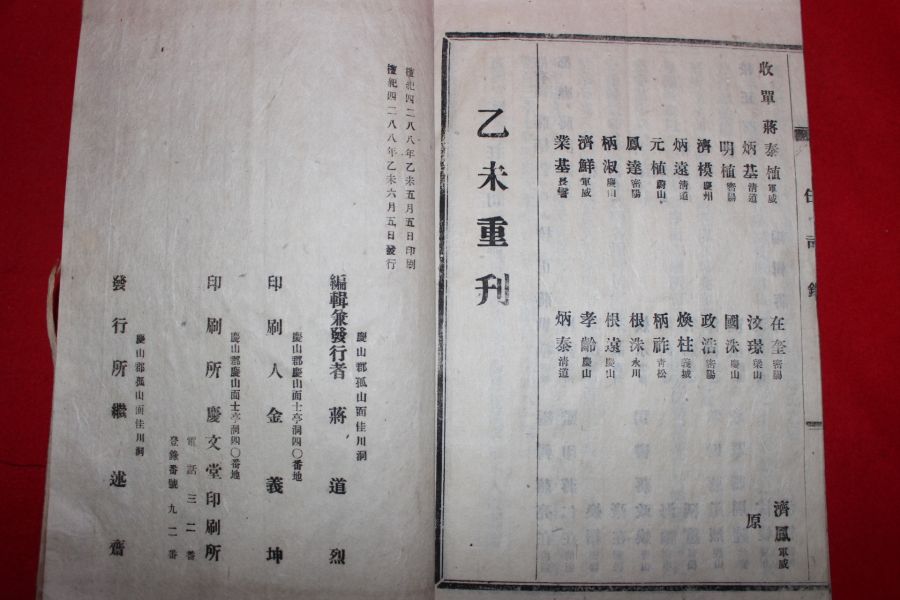 收單 蔣泰植 軍威 在奎 密陽 濟鳳 軍威
炳基 清道 汶璟 原
明植 密陽 國洙 慶山
濟模 慶州 政浩 密陽
炳遠 清道 煥柱 義城
元植 蔚山 柄祚 青松
鳳達 密陽 根洙 永川
柄淑 慶山 根遠 慶山
濟鮮 軍威 孝齡 慶山
業基 長鬐 炳泰 清道
乙未重刊
檀紀四二八八年乙未五月五日印刷
檀紀四二八八年乙未六月五日發行
慶山郡孤山面佳川洞
編輯兼發行者 蔣道烈
慶山郡慶山面士亭洞四〇番地
印刷人 金義坤
慶山郡慶山面士亭洞四〇番地
印刷所 慶文堂印刷所
電話三二番
登錄番號九二番
慶山郡孤山面佳川洞
發行所 繼述齋